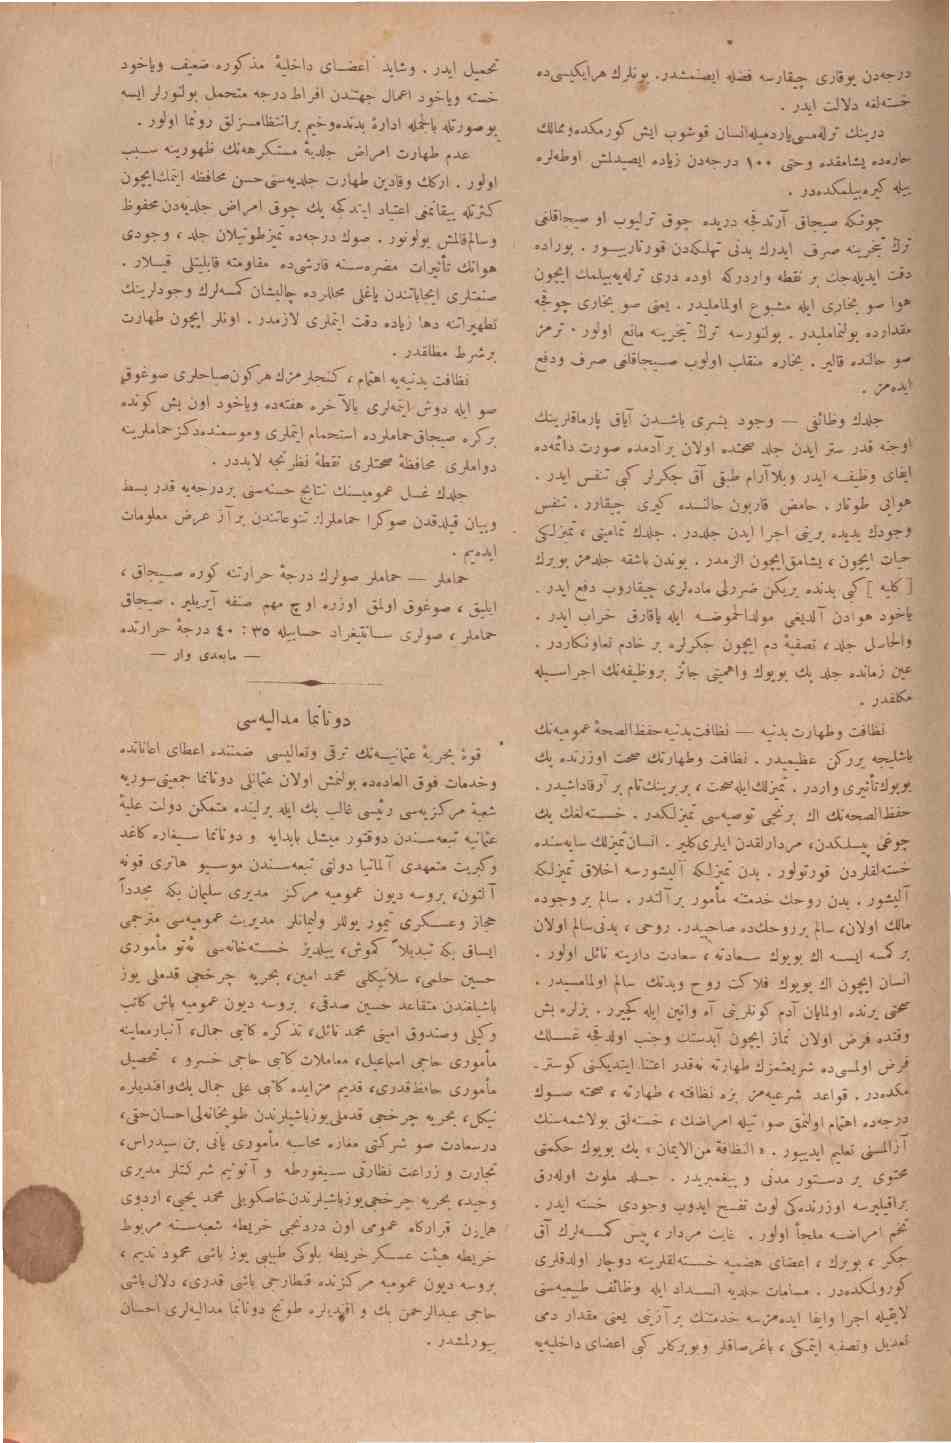 درجه‌دن یوقاری چیقارسه فضله ایصنمشدر. بونلرك هر ایكیسی ده
خسته‌لغه دلالت ایدر .
درینك ترله‌مسی یاردمیله انسان قوشوب ایش كورمكده و ممالك
حاره‌ده یشامقده وحتی ۱۰۰ درجه‌دن زیاده ایصیدلمش اوطه‌لره
بیله كیره بیلمكده‌در .
چونكه صیجاق آرتدقجه دریده چوق ترلیوب او صیجاقلغی
ترك تبخرینه صرف ایدرك بدنی تهلكه‌دن قورتارییور . بوراده
دقت ایدیله‌جك بر نقطه واردركه اوده دری ترله‌یه‌بیلمك ایچون
هوا صو بخاری ایله مشبوع اولماملیدر . یعنی صو بخاری چوقجه
مقدارده بولنماملیدر . بولنورسه ترك تبخرینه مانع اولور . ترمز
صو حالنده قالیر . بخاره منقلب اولوب صیجاقلغی صرف ودفع
ایده‌مز .
جلدك وظائفی — وجود بشری باشدن آیاق پارماقلرینك
اوجنه قدر ستر ایدن جلد صحتده اولان بر آدمده صورت دائمه‌ده
ایفای وظیفه ایدر وبلا آرام طبقی آق جكرلر كبی تنفس ایدر .
هوایی طوتار. حامض قاربون حالنده كیری چیقارر. تنفس
وجودك یدیده برینی اجرا ایدن جلددر . جلدك تمامیتی ، تمیزلكی
حیات ایچون ، یشامق ایچون الزمدر . بوندن باشقه جلدمز بوبرك
[ كلیه ] كبی بدنده بریكن ضررلی ماده‌لری چیقاروب دفع ایدر .
یاخود هوادن آلدیغی مولدالحموضه ایله یاقارق خراب ایدر .
والحاصل جلد ، تصفیۀ دم ایچون جكرلره بر خادم تعاونكاردر .
عین زمانده جلد پك بویوك واهمیتی حائز بر وظیفه‌نك اجراسیله
مكلفدر .
نظافت وطهارت بدنیه — نظافت بدنیه حفظ الصحۀ عمومیه‌نك
باشلیجه برركن عظیمیدر . نظافت وطهارتك صحت اوزرنده پك
بویوك تأثیری واردر . تمیزلك ایله صحت ، بربرینك تام بر آرقاداشیدر .
حفظ الصحه‌نك اك برنجی توصیه‌سی تمیزلكدر . خسته‌لغك پك
چوغی پیسلكدن، مردارلقدن ایلری كلیر . انسان تمیزلك سایه‌سنده
خسته‌لقلردن قورتولور . بدن تمیزلكه آلیشورسه اخلاق تمیزلكه
آلیشور . بدن روحك خدمتنه مأمور بر آلتدر . سالم بر وجوده
مالك اولان، سالم بر روحك ده صاحبیدر. روحی ، بدنی سالم اولان
بر كمسه ایسه اك بویوك سعادته ، سعادت دارینه نائل اولور .
انسان ایچون اك بویوك فلاكت روح وبدنك سالم اولمامسیدر .
صحتی یرنده اولمایان آدم كونلرینی آه وانین ایله كچیرر . بزلره بش
وقتده فرض اولان نماز ایچون آبدستك وجنب اولدقجه غسلك
فرض اولمسی ده شریعتمزك طهارته نه‌قدر اعتنا ایتدیكنی كوستر-
مكده‌در . قواعد شرعیه‌مز بزه نظافته ، طهارته ، صحته صوك
درجه‌ده اهتمام اولنمق صورتیله امراضك ، خسته‌لق بولاشمه‌سنك
آزالمسنی تعلیم ایدییور . « النظافة من الایمان » پك بویوك حكمتی
محتوی بر دستور مدنی و پیغمبریدر . جلد ملوث اوله‌رق
براقیلیرسه اوزرنده‌كی لوث تفسخ ایدوب وجودی خسته ایدر .
تخم امراضه ملجأ اولور . غایت مردار ، پیس كمسه‌لرك آق
جكر ، بوبرك ، اعضای هضمیه خسته‌لقلرینه دوچار اولدقلری
كورولمكده‌در . مسامات جلدیه انسداد ایله وظائف طبیعیه‌سنی
لایقیله اجرا وایفا ایده‌مزسه خدمتنك بر آزینی یعنی مقدار دمی
تعدیل وتصفیه ایتمكی ، باغرصاقلر وبوبركلر كبی اعضای داخلیه‌یه
تحمیل ایدر . وشاید اعضای داخلیۀ مذكوره ضعیف ویاخود
خسته ویاخود اعمال جهتندن افراط درجه متحمل بولنورلر ایسه
بوصورتله بالجمله ادارۀ بدنده وخیم بر انتظامسزلق رونما اولور .
عدم طهارت امراض جلدیۀ مستكرهه‌نك ظهورینه سبب
اولور . ارككك وقادین طهارت جلدیه‌سنی حسن محافظه ایتمك ایچون
كثرتله ییقانمغی اعتیاد ایتدكجه پك چوق امراض جلدیه‌دن محفوظ
وسالم قالمش بولونور . صوك درجه‌ده تمیز طوتیلان جلد ، وجودی
هوانك تأثیرات مضره‌سنه قارشی ده مقاومته قابلیتلی قیلار .
صنعتلری ایجاباتندن یاغلی محللرده چالیشان كمسه‌لرك وجودلرینك
تطهیراتنه دها زیاده دقت ایتملری لازمدر . اونلر ایچون طهارت
بر شرط مطلقدر .
نظافت بدنیه‌یه اهتمام ، كنجلرمزك هر كون صباحلری صوغوق
صو ایله دوش ایتمه‌لری بالآخره هفته‌ده ویاخود اون بش كونده
بركره صیجاق حماملرده استحمام ایتملری وموسمنده دكز حماملرینه
دواملری محافظۀ صحتلری نقطۀ نظرنجه لابددر .
جلدك غسل عمومیسنك نتایج حسنه‌سنی بر درجه‌یه قدر بسط
وبیان قیلدقدن صوكرا حماملرك تنوعاتندن بر آز عرض معلومات
ایده‌یم .
حماملر — حماملر صولرك درجۀ حرارتنه كوره صیجاق ،
ایلیق ، صوغوق اولمق اوزره اوچ مهم صنفه آیریلیر . صیجاق
حماملر ، صولری سانتیغراد حسابیله ۳۵ : ۴۰ درجۀ حرارتده
— مابعدی وار —
دونانما مدالیه‌سی
قوۀ بحریۀ عثمانیه‌نك ترقی وتعالیسی ضمننده اعطای اعاناتده
وخدمات فوق العاده‌ده بولنمش اولان عثمانلی دونانما جمعیتی سوریه
شعبۀ مركزیه‌سی رئیسی غالب بك ایله برلینده متمكن دولت علیۀ
عثمانیه تبعه‌سندن دوقتور میشل بابدایه و دونانما سیغاره كاغد
وكبریت متعهدی آلمانیا دولتی تبعه‌سندن موسیو هانری قونه
آلتون، بروسه دیون عمومیه مركز مدیری سلیمان بكه مجدداً
حجاز وعسكری تیمور یوللر ولیمانلر مدیریت عمومیه‌سی مترجمی
ایساق بكه تبدیلاً كموش، ییلدیز خسته‌خانه‌سی ئه‌تو مأموری
حسین حلمی، سلانیكلی محمد امین، بحریه چرخجی قدملی یوز
باشیلغندن متقاعد حسین صدقی، بروسه دیون عمومیه باش كاتب
وكیلی وصندوق امینی محمد نائل، تذكره كاتبی جمال، آنبار معاینه
مأموری حاجی اسماعیل، معاملات كاتبی حاجی خسرو ، تحصیل
مأموری حافظ قدری، قدیم مزایده كاتبی علی جمال بك وافندیلره
نیكل، بحریه چرخجی قدملی یوزباشیلرندن طوبخانه‌لی احسان حقی،
درسعادت صو شركتی مغازه محاسبه مأموری یانی بن ایسیدراس،
تجارت و زراعت نظارتی سیغورطه و آنونیم شركتلر مدیری
وحید، بحریه چرخجی یوزباشیلرندن خاصكویلی محمد یحیی، اردوی
همایون قرارگاه عمومی اون دردنجی خریطه شعبه‌سنه مربوط
خریطه هیئت عسكر خریطه بلوكی طبیبی یوز باشی محمود ندیم ،
بروسه دیون عمومیه مركزنده قنطارجی باشی قدری، دلال باشی
حاجی عبدالرحمن بك و افندیلره طونج دونانما مدالیه‌لری احسان
بیورلمشدر .